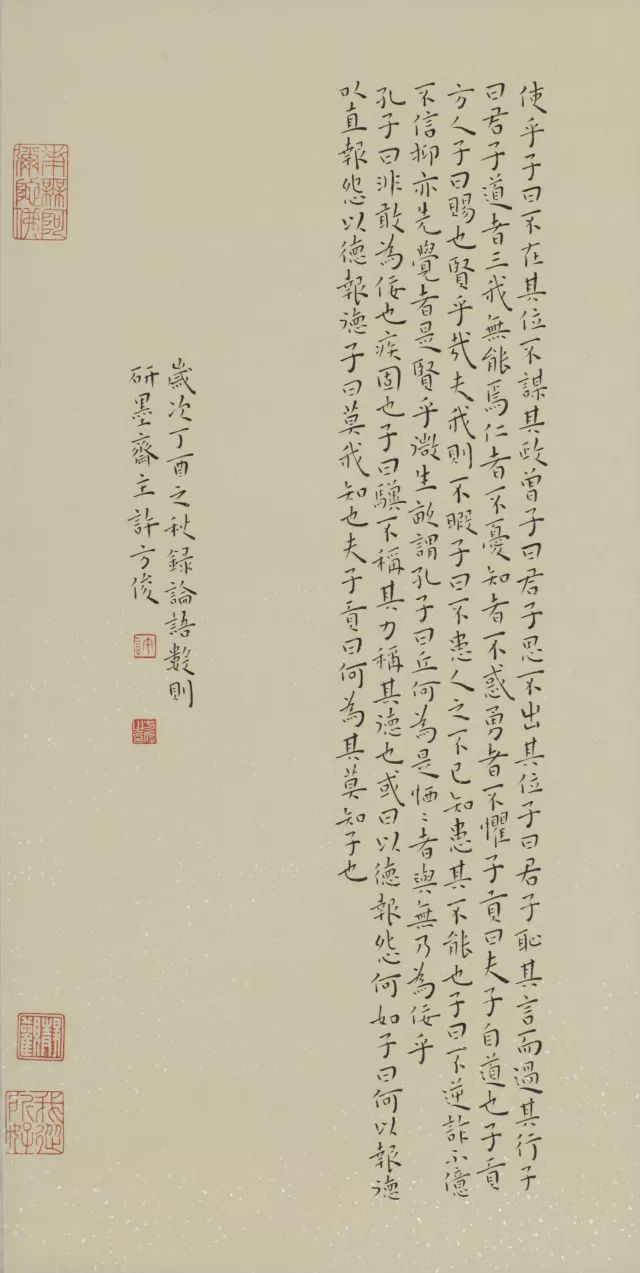 使乎子曰不在其位不謀其政曾子曰君子思不出其位子曰君子恥其言而過其行子
曰君子道者三我無能焉仁者不憂知者不惑勇者不懼子貢曰夫子自道也子貢
方人子曰賜也賢乎哉夫我則不暇子曰不患人之不己知患其不能也子曰不逆詐不億
不信抑亦先覺者是賢乎微生畝謂孔子曰丘何為是恓〻者與無乃為佞乎
孔子曰非敢為佞也疾固也子曰驥不稱其力稱其德也或曰以德報怨何如子曰何以報德
以直報怨以德報德子曰莫我知也夫子貢曰何為其莫知子也
歲次丁酉之秋錄論語數則
研墨齋主許方俊
許
南無阿彌陀佛